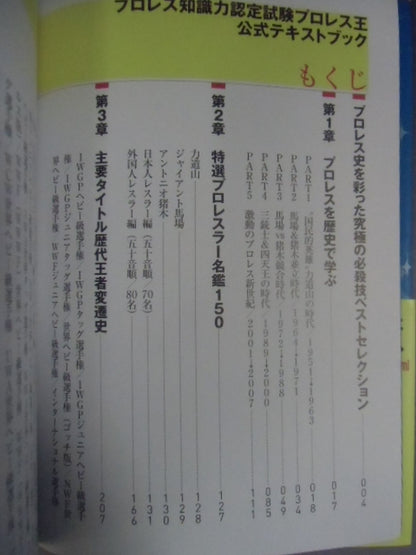 プロレス知識力認定試験プロレス王
公式テキストブック
もくじ
プロレス史を彩った究極の必殺技ベストセレクション 004
第1章 プロレスを歴史で学ぶ 017
PART1 “国民的英雄”力道山の時代 1951→1963 018
PART2 馬場&猪木並立時代 1964→1971 034
PART3 馬場vs猪木競合時代 1972→1988 049
PART4 三銃士&四天王の時代 1989→2000 085
PART5 激動のプロレス新世紀 2001→2007 111
第2章 特選プロレスラー名鑑150 127
力道山 128
ジャイアント馬場 129
アントニオ猪木 130
日本人レスラー編(五十音順/70名) 131
外国人レスラー編(五十音順/80名) 166
第3章 主要タイトル歴代王者変遷史 207
IWGPヘビー級選手権/IWGPタッグ選手権/IWGPジュニアヘビー級選手
権/IWGPジュニアタッグ選手権/世界ヘビー級選手権(ゴッチ版)/NWF世
界ヘビー級選手権/WWFジュニアヘビー級選手権/インターナショナル選手権